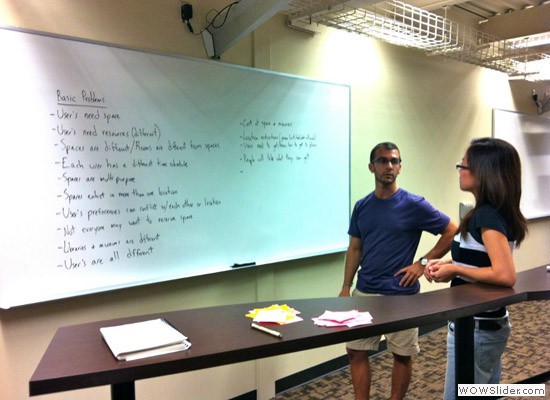 Basic Problems
- User's need space
- User's need resources (different)
- Spaces are different/Rooms are different from spaces
- Each user has a different time schedule
- Spaces are multi-purpose
- Spaces exist in more than one location
- User's preferences can conflict w/ each other or location
- Not everyone may want to reserve space
- Libraries + museums are different
- User's are all different
- Cost of space + resources
- Location restrictions
- Users need to get there
- People will take what they can get
-
WOWSlider.com